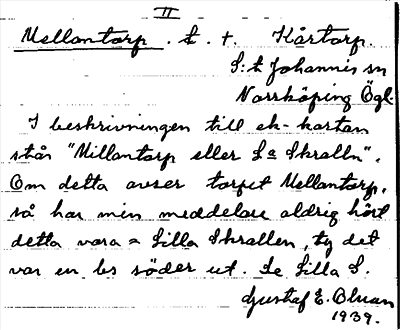 II
Mellantorp. t. +. Kårtorp.
S:t Johannis sn
Norrköping Ögl.
I beskrivningen till ek-kartan
står "Millantorp eller La Skralln".
Om detta avser torpet Mellantorp,
så har min meddelare aldrig hört
detta vara = Lilla Skrallen, ty det
var en bs söder ut. Se Lilla S.
Gustaf E.
1939.